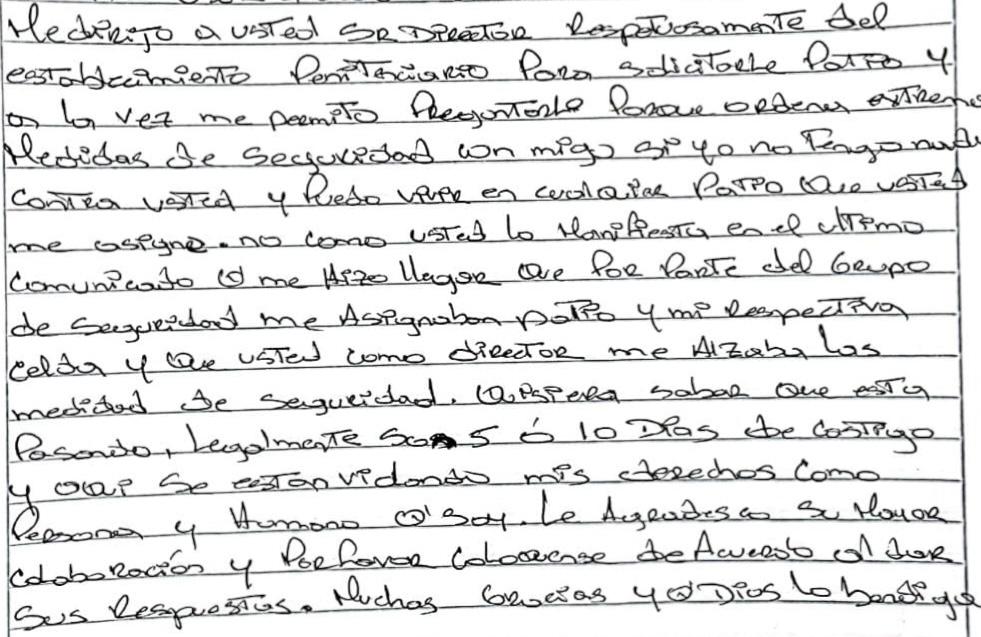 Me dirijo a usted SR DIRECTOR Respetuosamente del
establecimiento Penitenciario Para solicitarle Patio y
a la vez me permito Preguntarle Porque ordenes extremas
Medidas de Seguridad con migo si yo no Tengo nada
contra usted y Puedo vivir en cualquier Patio Que usted
me asigne. no como usted lo Manifiesta en el ultimo
Comunicado Q me Hizo llegar Que Por Parte del Grupo
de Seguridad me Asignaban patio y mi Respectiva
celda y Que usted como director me Alzaba las
medidad de seguridad. Quisiera saber Que esta
Pasando, Legalmente Son 5 ó 10 Dias de Castigo
y aqui Se estan violando mis derechos Como
Persona y Humano Q' Soy. Le Agradesco Su Mayor
Colaboración y Por favor Coloquense de Acuerdo al dar
Sus Respuestas. Muchas Gracias y Q' Dios lo bendiga